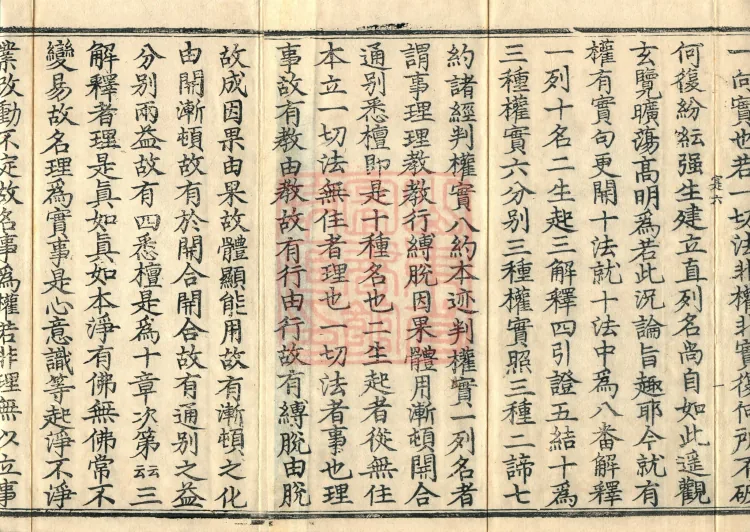 一向實也若一切法非權非實復何所不破
何復紛紜强生建立直列名尚自如此遥觀
玄覽曠蕩髙明爲若此況論旨趣耶今就有
權有實句更開十法就十法中爲八番解釋
一列十名二生起三解釋四引證五結十爲
三種權實六分别三種權實照三種二諦七
約諸經判權實八約本迹判權實一列名者
謂事理理教教行縛脱因果體用漸頓開合
通别悉檀即是十種名也二生起者從無住
本立一切法無住者理也一切法者事也理
事故有教由教故有行由行故有縛脱由脱
故成因果由果故體顯能用故有漸頓之化
由開漸頓故有於開合開合故有通别之益
分别兩益故有四悉檀是爲十章次第云云三
解釋者理是真如真如本淨有佛無佛常不
變易故名理爲實事是心意識等起淨不淨
業改動不定故名事爲權若非理無以立事